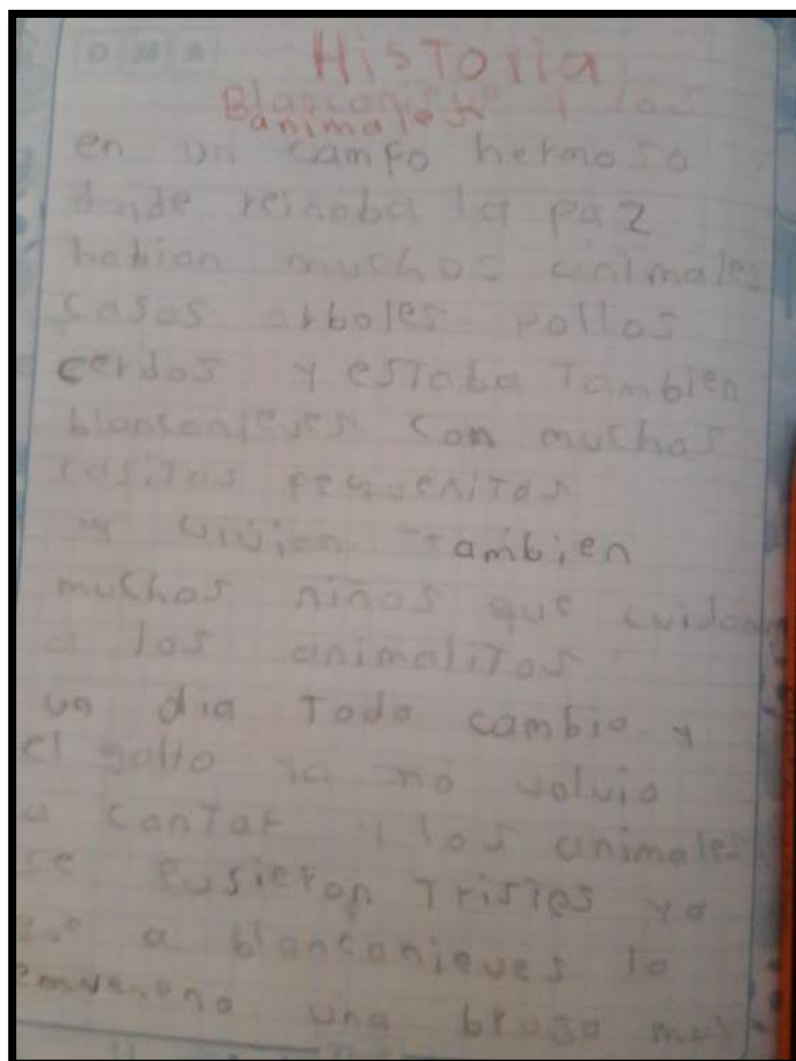 D M A
Historia
Blancanieves y los
animales
en un campo hermoso
donde reinaba la paz
habian muchos animales
casas arboles pollos
cerdos y estaba Tambien
blancanieves con muchas
casitas pequeñitas
y vivien Tambien
muchos niños que cuidaban
a los animalitos
un dia Todo cambio y
el gallo ya no volvio
a canTar y los animales
se pusieron TrisTes ya
que a blancanieves la
emveneno una bruja